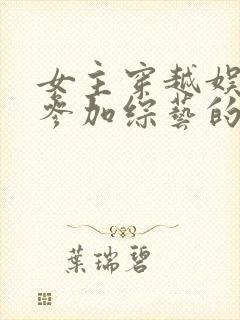 女主穿越娱
参加综艺的
葉瑞碧